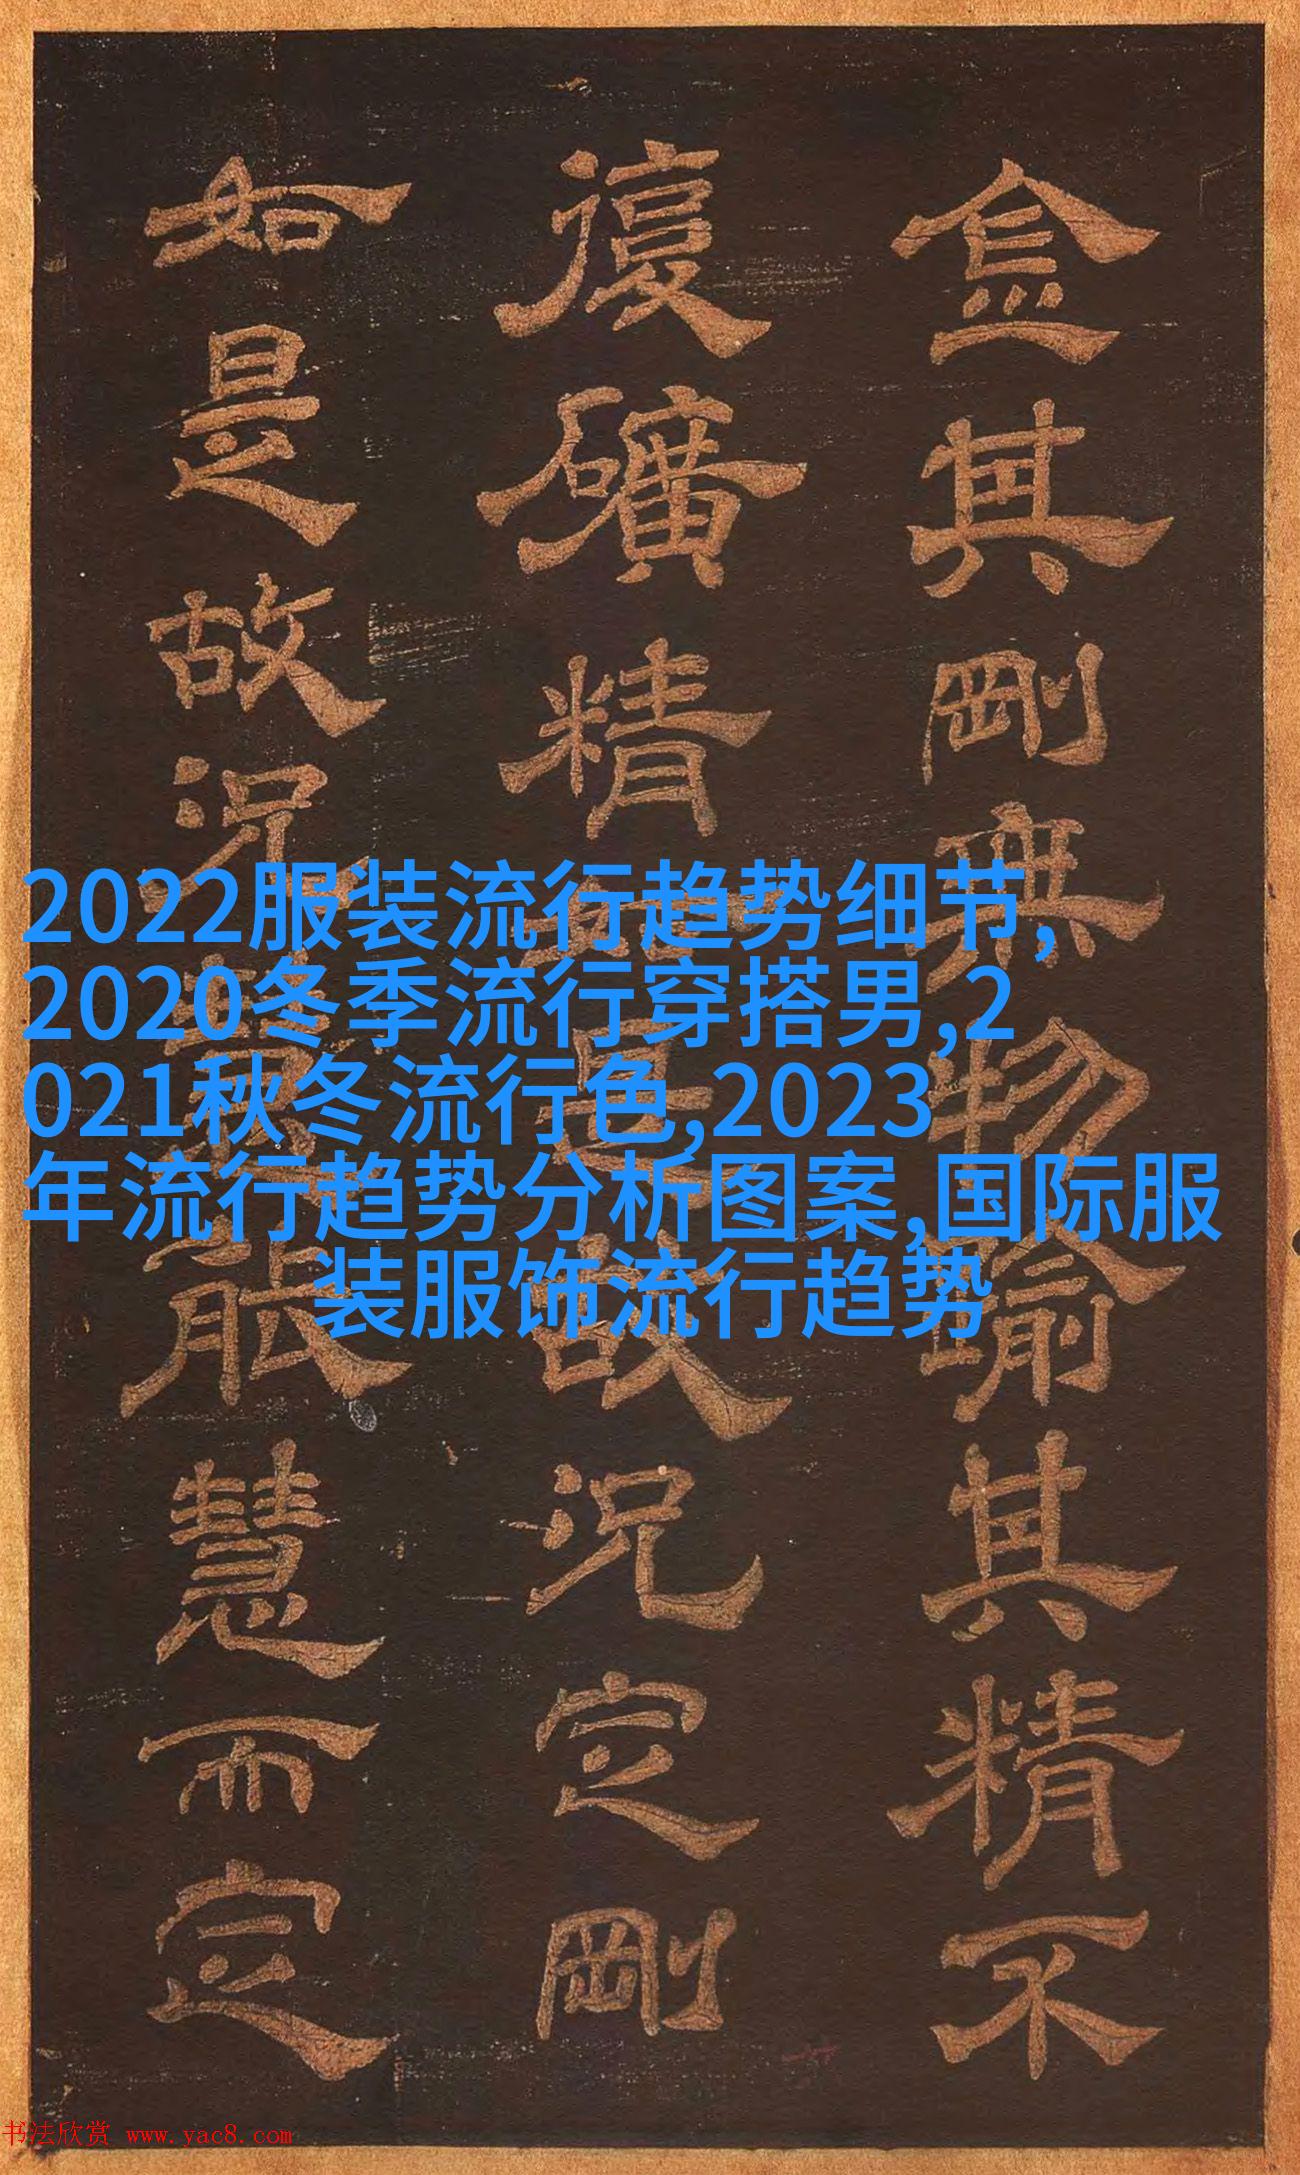 金其剛無物喻其精不
復礦精是故況定剛
如是故況能慧而定
2022服装流行趋势细节,
2020冬季流行穿搭男,2
021秋冬流行色,2023
年流行趋势分析图案,国际服
装服饰流行趋势
书法欣赏 www.yac8.com